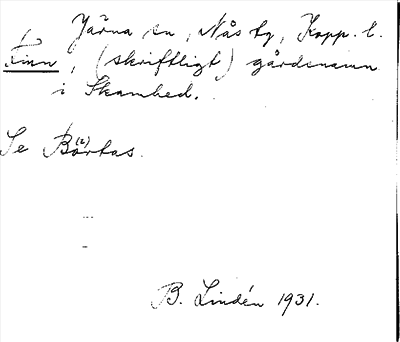 Järna sn, Nås tg, Kopp. l.
Finn, (skriftligt) gårdsnamn
i Skambed.
Se Bortas.
B. Lindén 1931.